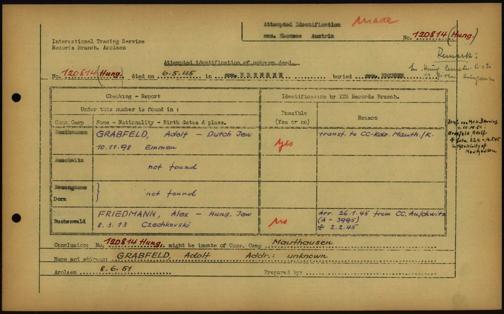 Attempted Identification
made
International Tracing Service
Records Branch, Arolsen
Austria
No. 120814 (Hung)
Remark:
Attempted identification of unknown dead.
No. 120814 Hung. died on 6.5.45 in buried
Checking - Report
Identification by ITS Records Branch.
Under this number is found in:
Possible
(Yes or no)
Reason
Conc. Camp
Name - Nationality - Birth dates & place.
GRABFELD, Adolf - Dutch Jew
10.11.98 Emmen
yes
transf. to CC-Kdo Mauth./K.
Auschwitz
not found
Dora
not found
Buchenwald
FRIEDMANN, Alex - Hung. Jew
8.3.13
no
Arr. 26.1.45 from CC. Auschwitz
(A - 3995)
2.2.45
Conclusion: No. 120814 Hung. might be inmate of Conc. Camp Mauthausen
Name and address: GRABFELD, Adolf Addr.: unknown
Arolsen 8.6.51 Prepared by: